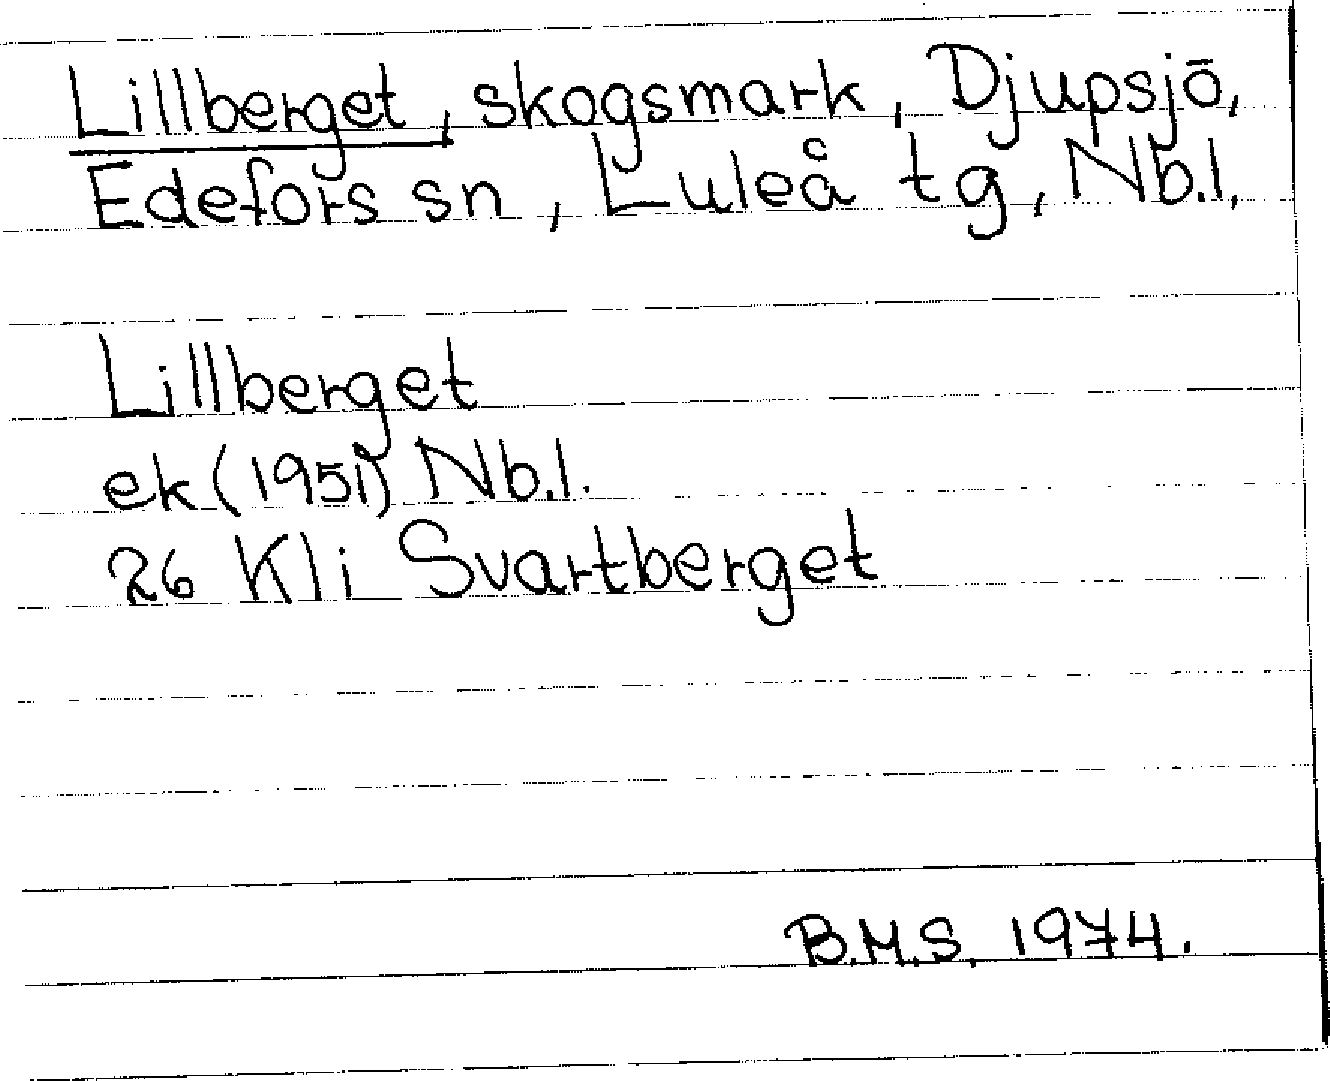 Lillberget, skogsmark, Djupsjö,
Edefors sn, Luleå tg, Nb.l.
Lillberget
ek (1951) Nb.l.
26 Kli Svartberget
B.M.S. 1974.